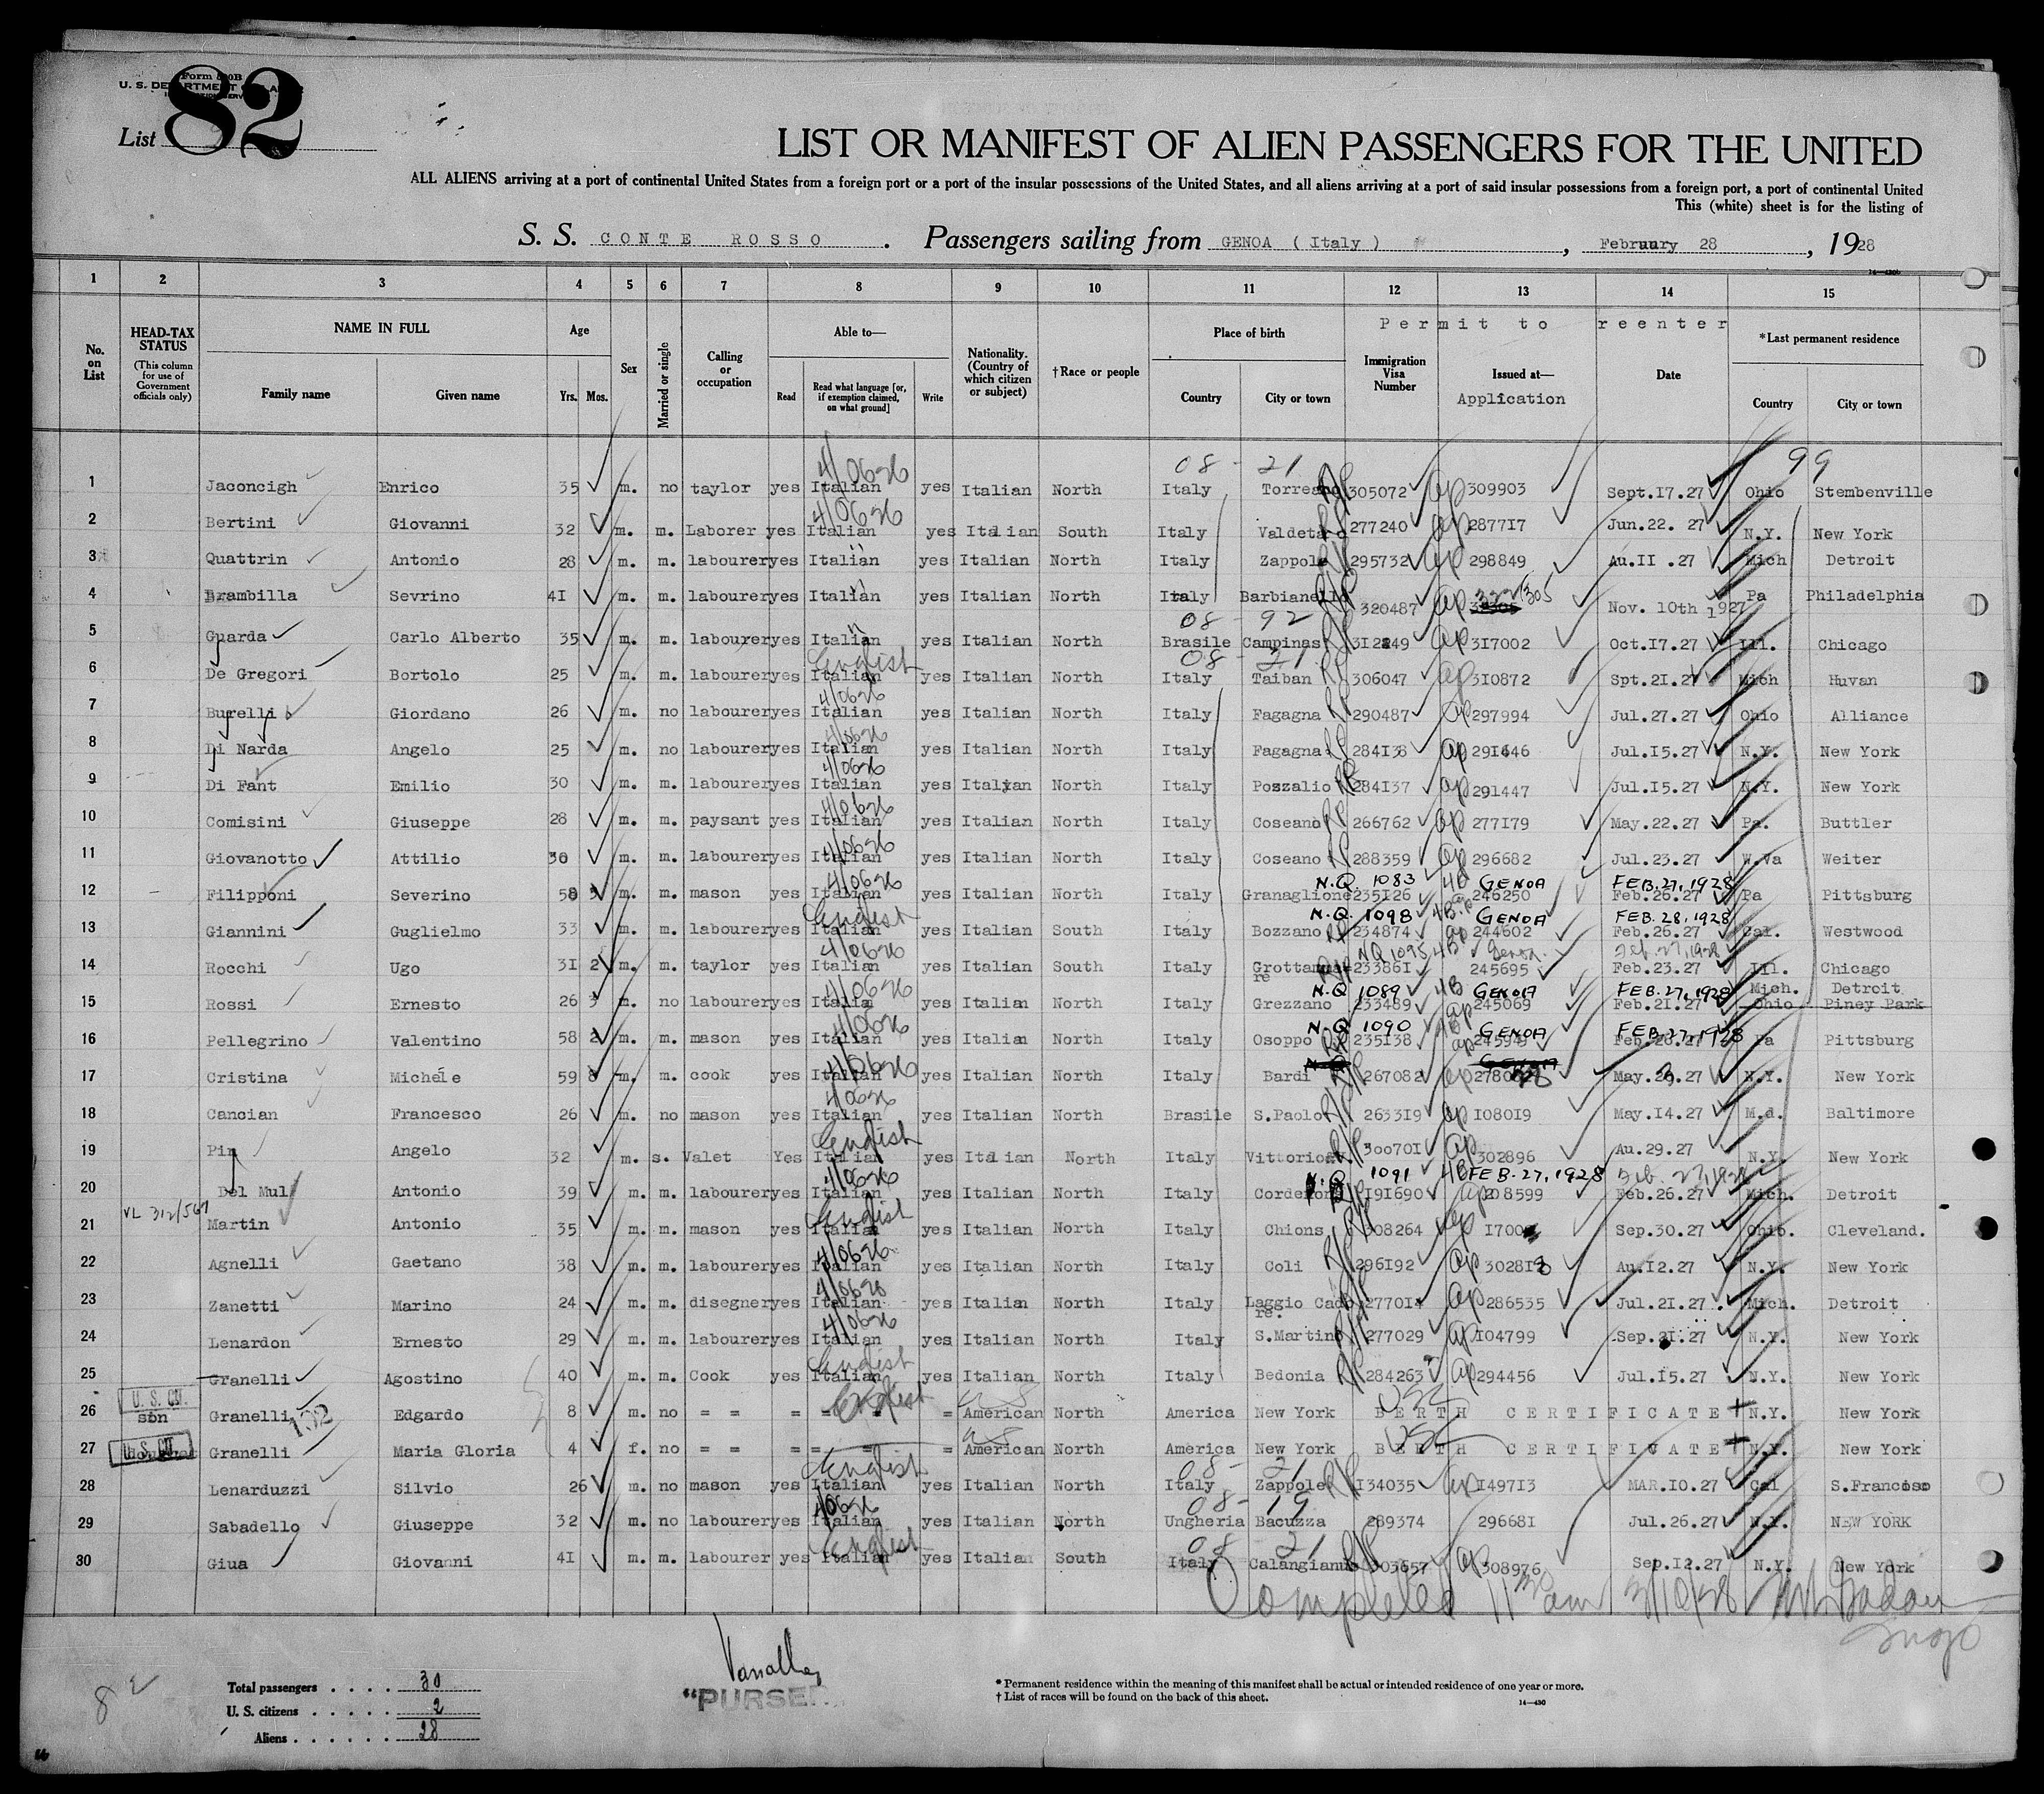 Form 500B
U. S. DEPARTMENT OF LABOR
List 82
LIST OR MANIFEST OF ALIEN PASSENGERS FOR THE UNITED
ALL ALIENS arriving at a port of continental United States from a foreign port or a port of the insular possessions of the United States, and all aliens arriving at a port of said insular possessions from a foreign port, a port of continental United
This (white) sheet is for the listing of
S. S. CONTE ROSSO . Passengers sailing from GENOA ( Italy ) , February 28 , 1928
1 2 3 4 5 6 7 8 9 10 11 12 13 14 15
No. on List
HEAD-TAX STATUS (This column for use of Government officials only)
NAME IN FULL Family name Given name
Age Yrs. Mos.
Sex
Married or single
Calling or occupation
Able to— Read Read what language [or, if exemption claimed, on what ground] Write
Nationality. (Country of which citizen or subject)
†Race or people
Place of birth Country City or town
Permit to reenter
Immigration Visa Number
Issued at— Application
Date
*Last permanent residence Country City or town
4/0626 08 - 21 99
1 Jaconcigh Enrico 35 m. no taylor yes Italian yes Italian North Italy RP 305072 ap 309903 Sept.17.27 Ohio Stembenville
4/0626
2 Bertini Giovanni 32 m. m. Laborer yes Italian yes Italian South Italy 277240 ap 287717 Jun.22. 27 N.Y. New York
3 Quattrin Antonio 28 m. m. labourer yes Italian yes Italian North Italy Zappole 295732 ap 298849 Au.II .27 Mich Detroit
4 Brambilla Sevrino 41 m. m. labourer yes Italian yes Italian North Italy Barbianello 320487 ap 322305 Nov. 10th 1927 Pa Philadelphia
08 - 92
5 Guarda Carlo Alberto 35 m. m. labourer yes Italian yes Italian North Brasile Campinas 312249 ap 317002 Oct.17.27 Ill. Chicago
English 08 - 21
6 De Gregori Bortolo 25 m. m. labourer yes Italian yes Italian North Italy Taiban 306047 ap 310872 Spt.21.27 Mich Huvan
4/0626
7 Burelli Giordano 26 m. no labourer yes Italian yes Italian North Italy Fagagna 290487 ap 297994 Jul.27.27 Ohio Alliance
4/0626
8 Di Narda Angelo 25 m. no labourer yes Italian yes Italian North Italy Fagagna 284138 ap 291446 Jul.15.27 N.Y. New York
4/0626
9 Di Fant Emilio 30 m. m. labourer yes Italian yes Italyan North Italy Pozzalio 284137 ap 291447 Jul.15.27 N.Y. New York
4/0626
10 Comisini Giuseppe 28 m. m. paysant yes Italian yes Italian North Italy Coseano 266762 ap 277179 May.22.27 Pa. Buttler
4/0626
11 Giovanotto Attilio 30 m. m. labourer yes Italian yes Italian North Italy Coseano 288359 ap 296682 Jul.23.27 W.Va Weiter
4/0626 N.Q. 1083 4B GENOA FEB.27,1928
12 Filipponi Severino 58 m. m. mason yes Italian yes Italian North Italy Granaglione 235126 246250 Feb.26.27 Pa Pittsburg
English N.Q. 1098 4B GENOA FEB.28,1928
13 Giannini Guglielmo 33 m. m. labourer yes Italian yes Italian South Italy Bozzano 234874 ap 244602 Feb.26.27 Cal. Westwood
4/0626 NQ 1095 4B Genoa Feb.27,1928
14 Rocchi Ugo 31 2 m. m. taylor yes Italian yes Italian South Italy 233861 245695 Feb.23.27 Ill. Chicago
4/0626 N.Q 1089 4B GENOA FEB.27,1928 Mich. Detroit
15 Rossi Ernesto 26 3 m. no labourer yes Italian yes Italian North Italy Grezzano 233489 ap 245069 Feb.21.27 Ohio Piney Park
4/0626 N.Q 1090 4B GENOA FEB.27,1928
16 Pellegrino Valentino 58 2 m. m. mason yes Italian yes Italian North Italy Osoppo 235138 ap Pa Pittsburg
4/0626 N.Q GENOA
17 Cristina Michele 59 8 m. m. cook yes Italian yes Italian North Italy Bardi 267082 ap May.23.27 N.Y. New York
4/0626
18 Cancian Francesco 26 m. no mason yes Italian yes Italian North Brasile S.Paolo 263319 ap 108019 May.14.27 M.d. Baltimore
English
19 Pin Angelo 32 m. s. Valet Yes Italian yes Italian North Italy 300701 ap 302896 Au.29.27 N.Y. New York
4/0626 N.Q 1091 4B FEB.27,1928 Feb. 27, 1928
20 Del Mul Antonio 39 m. m. labourer yes Italian yes Italian North Italy 191690 ap 208599 Feb.26.27 Mich. Detroit
VL 312/567 English
21 Martin Antonio 35 m. m. mason yes Italian yes Italian North Italy Chions 308264 ap Sep.30.27 Ohio. Cleveland.
4/0626
22 Agnelli Gaetano 38 m. m. labourer yes Italian yes Italian North Italy Coli 296192 ap 302813 Au.12.27 N.Y. New York
4/0626
23 Zanetti Marino 24 m. m. disegner yes Italian yes Italian North Italy Laggio Cadore. 277014 ap 286535 Jul.21.27 Mich. Detroit
4/0626
24 Lenardon Ernesto 29 m. m. labourer yes Italian yes Italian North Italy S.Martino 277029 ap 104799 Sep.21.27 N.Y. New York
English
25 Granelli Agostino 40 m. m. Cook yes Italian yes Italian North Italy Bedonia 284263 ap 294456 Jul.15.27 N.Y. New York
U. S. CIT. English US USC
26 son Granelli 102 Edgardo 8 m. no = = = = = = American North America New York BERTH CERTIFICATE N.Y. New York
U. S. CIT. US USC
27 Granelli Maria Gloria 4 f. no = = = = = = American North America New York BERTH CERTIFIVATE N.Y. New York
English 08 - 21
28 Lenarduzzi Silvio 26 m. no mason yes Italian yes Italian North Italy Zappole 134035 ap 149713 MAR.10.27 Cal S.Francisso
4/0626 08 - 19
29 Sabadello Giuseppe 32 m. no labourer yes Italian yes Italian North Ungheria Bacuzza 289374 296681 Jul.26.27 N.Y. NEW YORK
English 08 - 21
30 Giua Giovanni 41 m. m. labourer yes Italian yes Italian South Italy Calangianus 303657 ap 308976 Sep.12.27 N.Y. New York
Completed 11 30 am 3/10/28
"PURSER"
Total passengers . . . . 30
U. S. citizens . . . . . 2
Aliens . . . . . . 28
* Permanent residence within the meaning of this manifest shall be actual or intended residence of one year or more.
† List of races will be found on the back of this sheet.
14—430